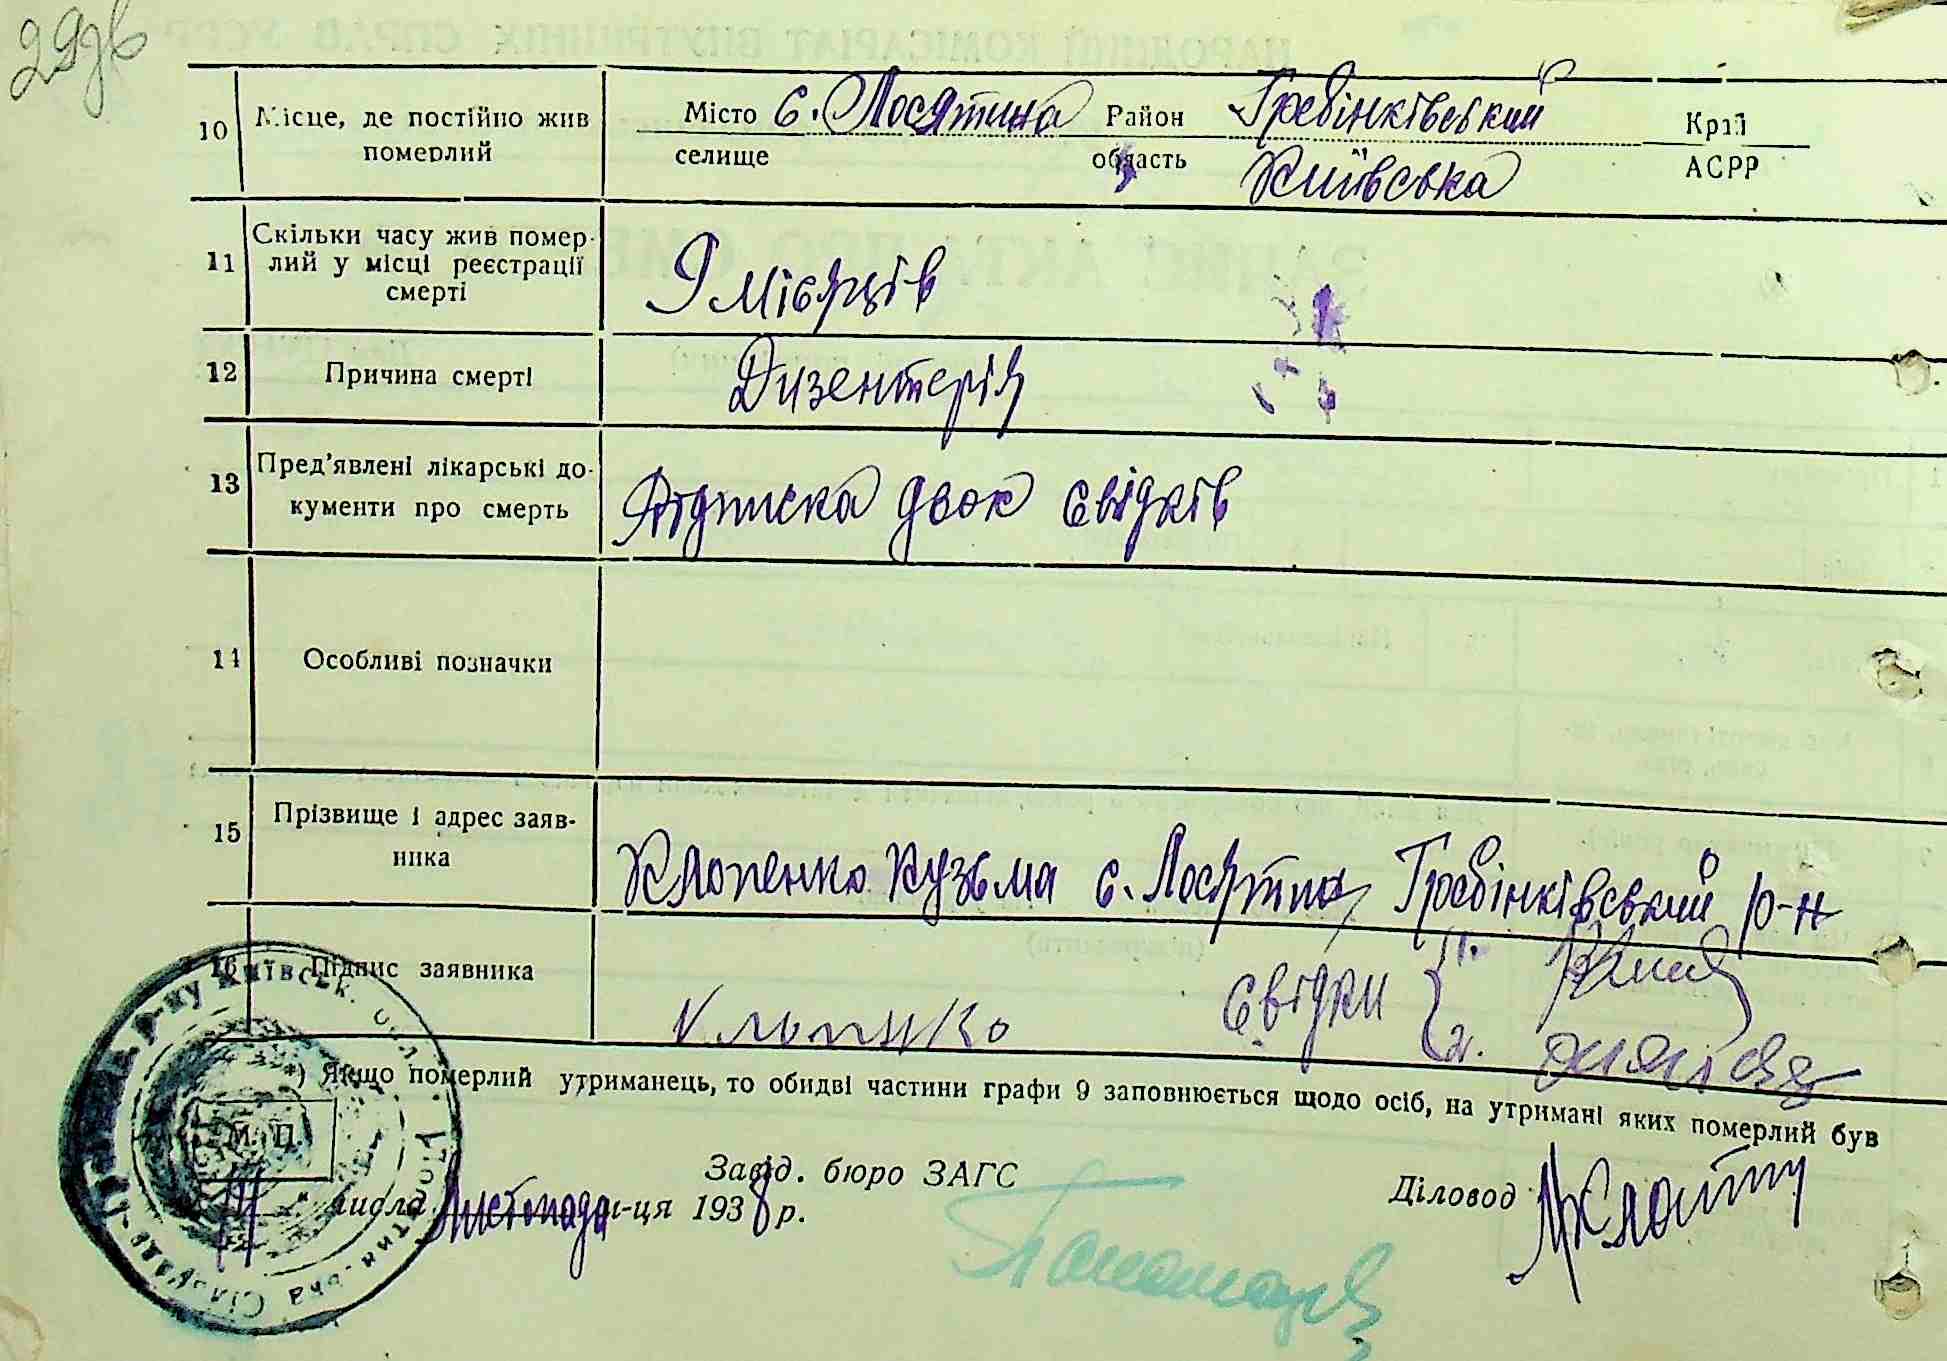 29зв
10 Місце, де постійно жив померлий
Місто с. Лосятина Район Гребінківський Край
селище область Київська АСРР
11 Скільки часу жив помер-
лий у місці реєстрації
смерті
9 місяців
12 Причина смерті Дизентерія
13 Пред'явлені лікарські до-
кументи про смерть
Підписка двох свідків
14 Особливі позначки
15 Прізвище і адрес заяв-
ника
Клопенко Кузьма с. Лосятина Гребінківський р-н
16 Підпис заявника
Клопенко Свідки 1.
2.
*) Якщо померлий утриманець, то обидві частини графи 9 заповнюється щодо осіб, на утримані яких померлий був
М. П.
Завід. бюро ЗАГС
Діловод
числа Листопада м-ця 1938 р.
р-ну Київськ. обл.
Сільрада